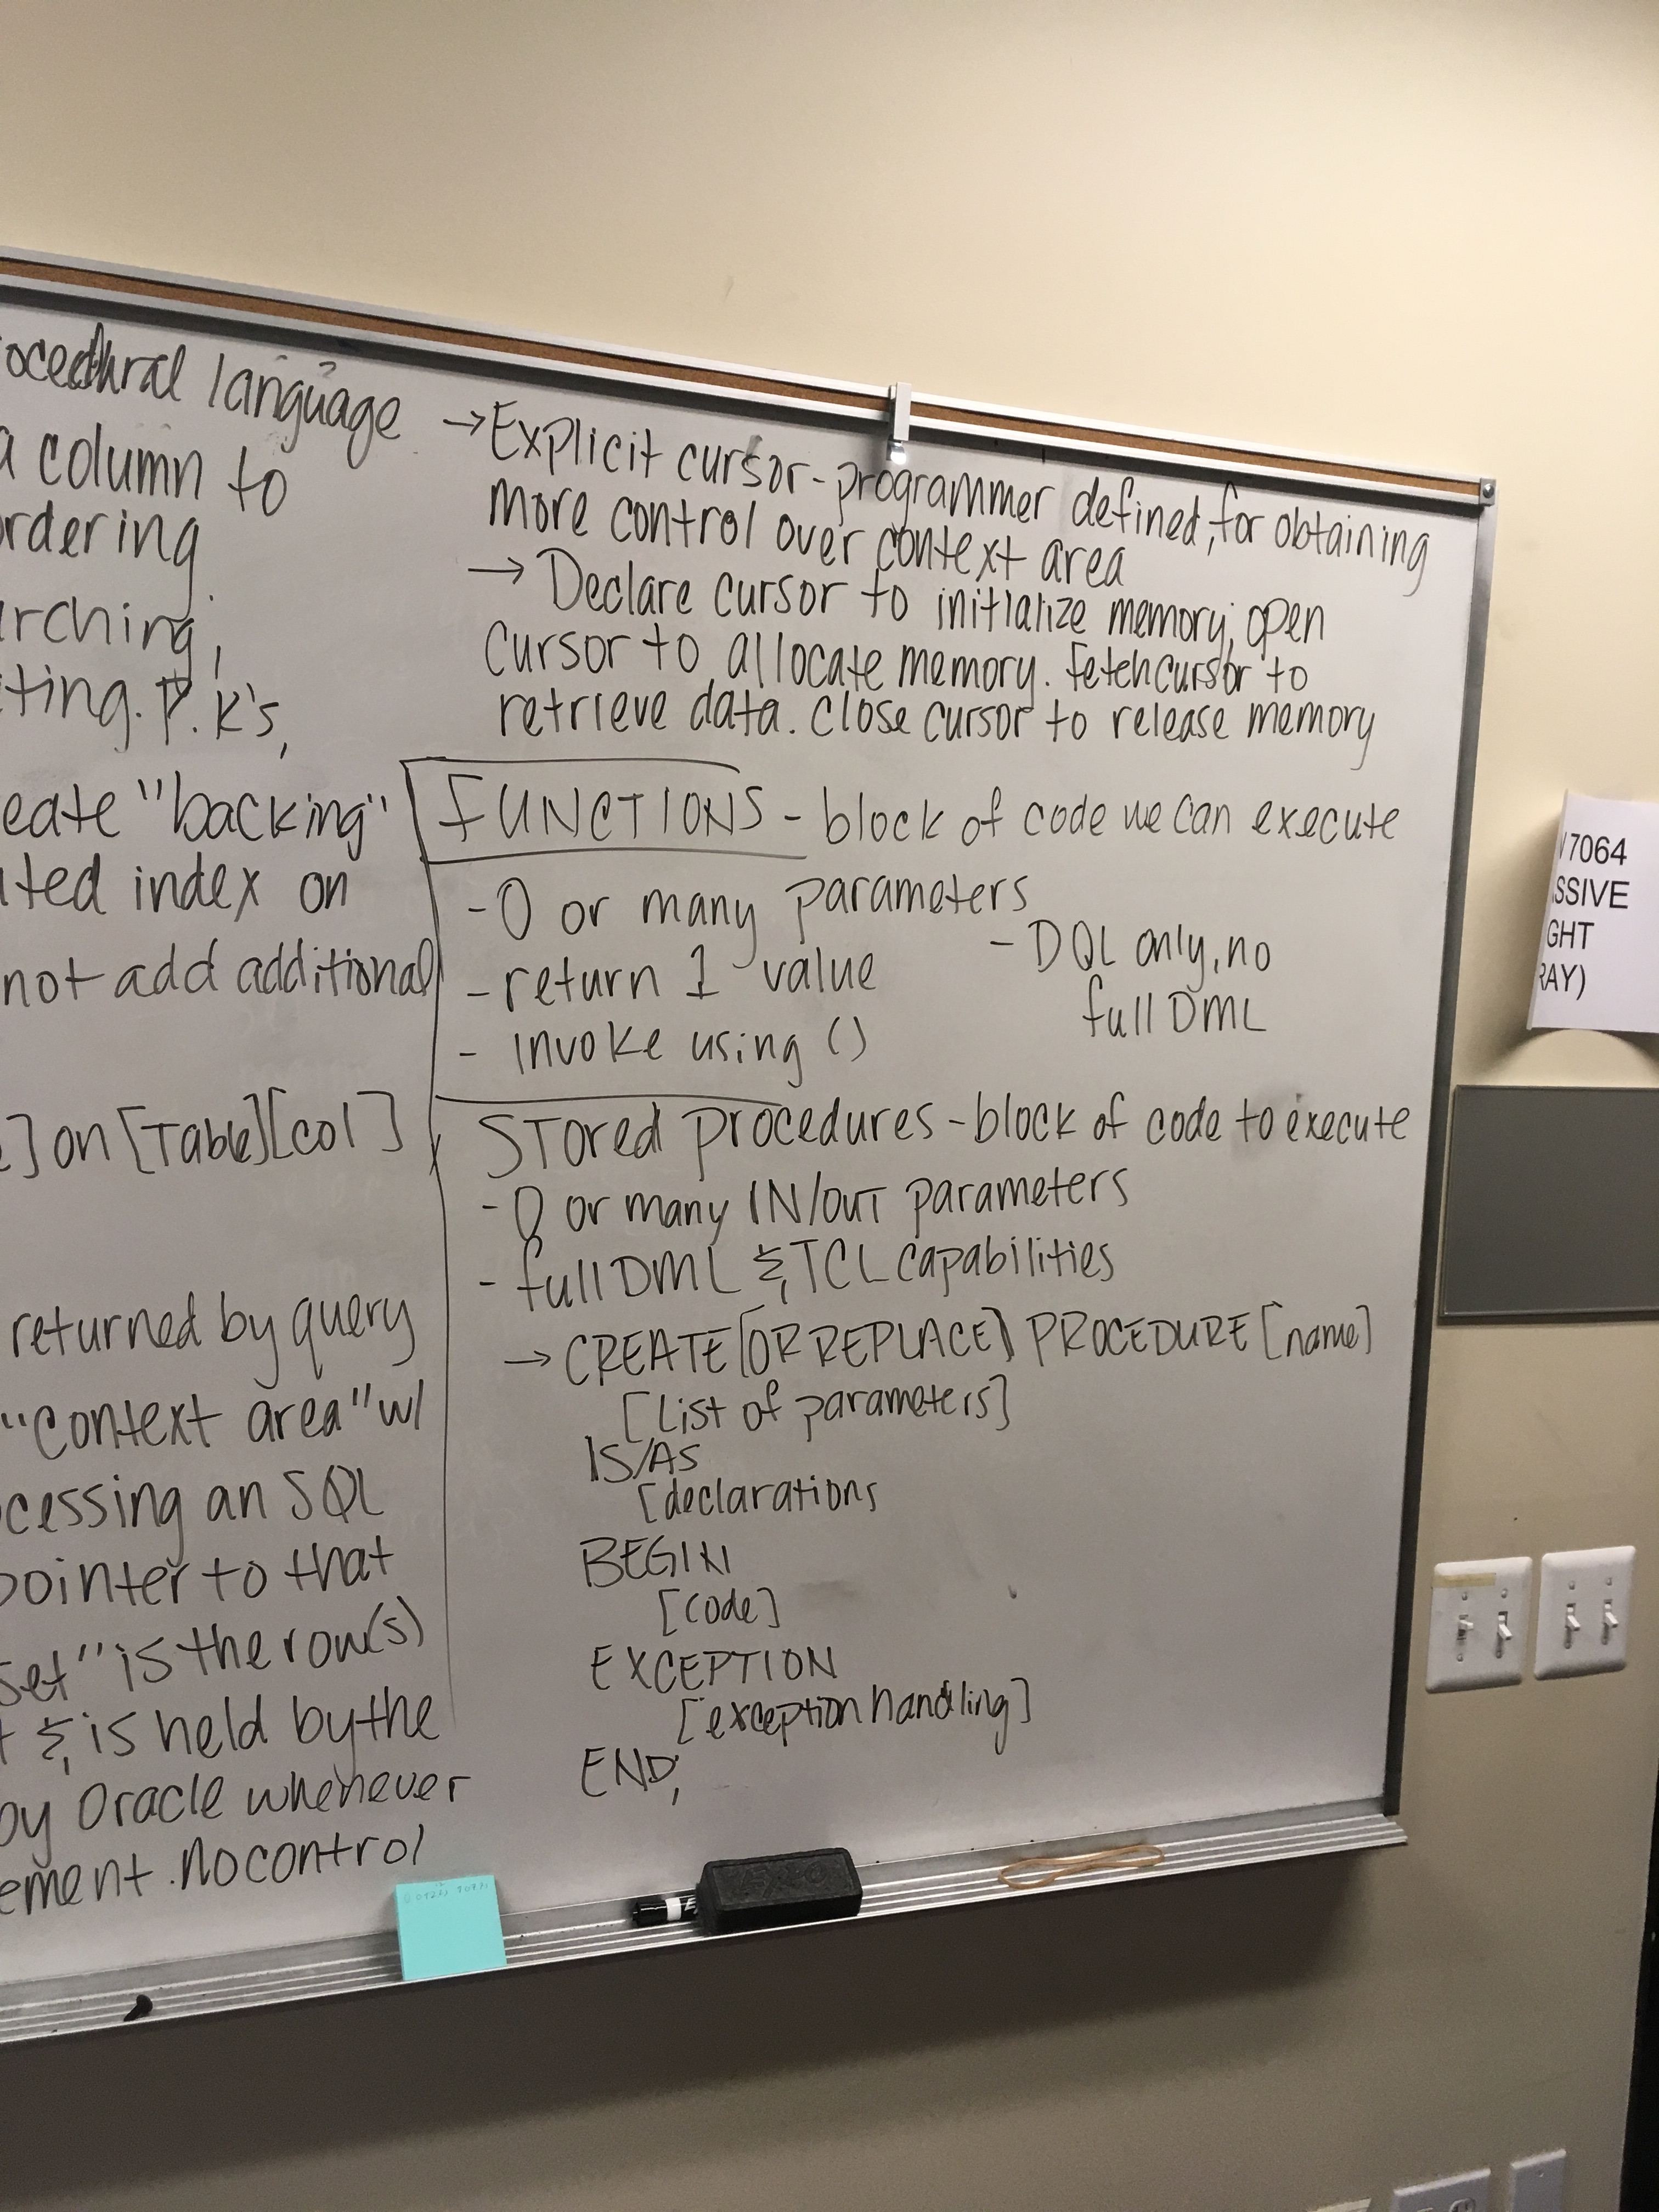 ocedural language
a column to
ordering
arching,
ting. P.K's,
eate "backing"
ted index on
not add additional
] on [Table][col]
returned by query
"context area" w/
cessing an SQL
pointer to that
set" is the row(s)
& is held by the
by Oracle whenever
ement. No control
→ Explicit cursor - programmer defined, for obtaining
more control over context area
→ Declare cursor to initialize memory, open
cursor to allocate memory. Fetch cursor to
retrieve data. Close cursor to release memory
FUNCTIONS - block of code we can execute
- 0 or many parameters
- return 1 value
- invoke using ()
- DQL only, no
full DML
STored procedures - block of code to execute
- 0 or many IN/OUT parameters
- full DML & TCL capabilities
→ CREATE [OR REPLACE] PROCEDURE [name]
[List of parameters]
IS/AS
[declarations
BEGIN
[code]
EXCEPTION
[exception handling]
END;
7064
SSIVE
GHT
RAY)